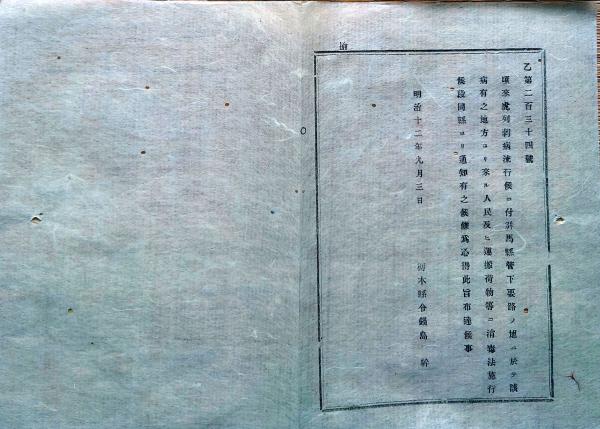 乙第二百三十四號
頃來虎列剌病流行候ニ付群馬縣管下要路ノ地ニ於テ該
病有之地方ヨリ來ル人民及ヒ運搬荷物等ニ消毒法施行
候段同縣ヨリ通知有之候條爲心得此旨布達候事
明治十二年九月三日
栃木縣令鍋島 幹